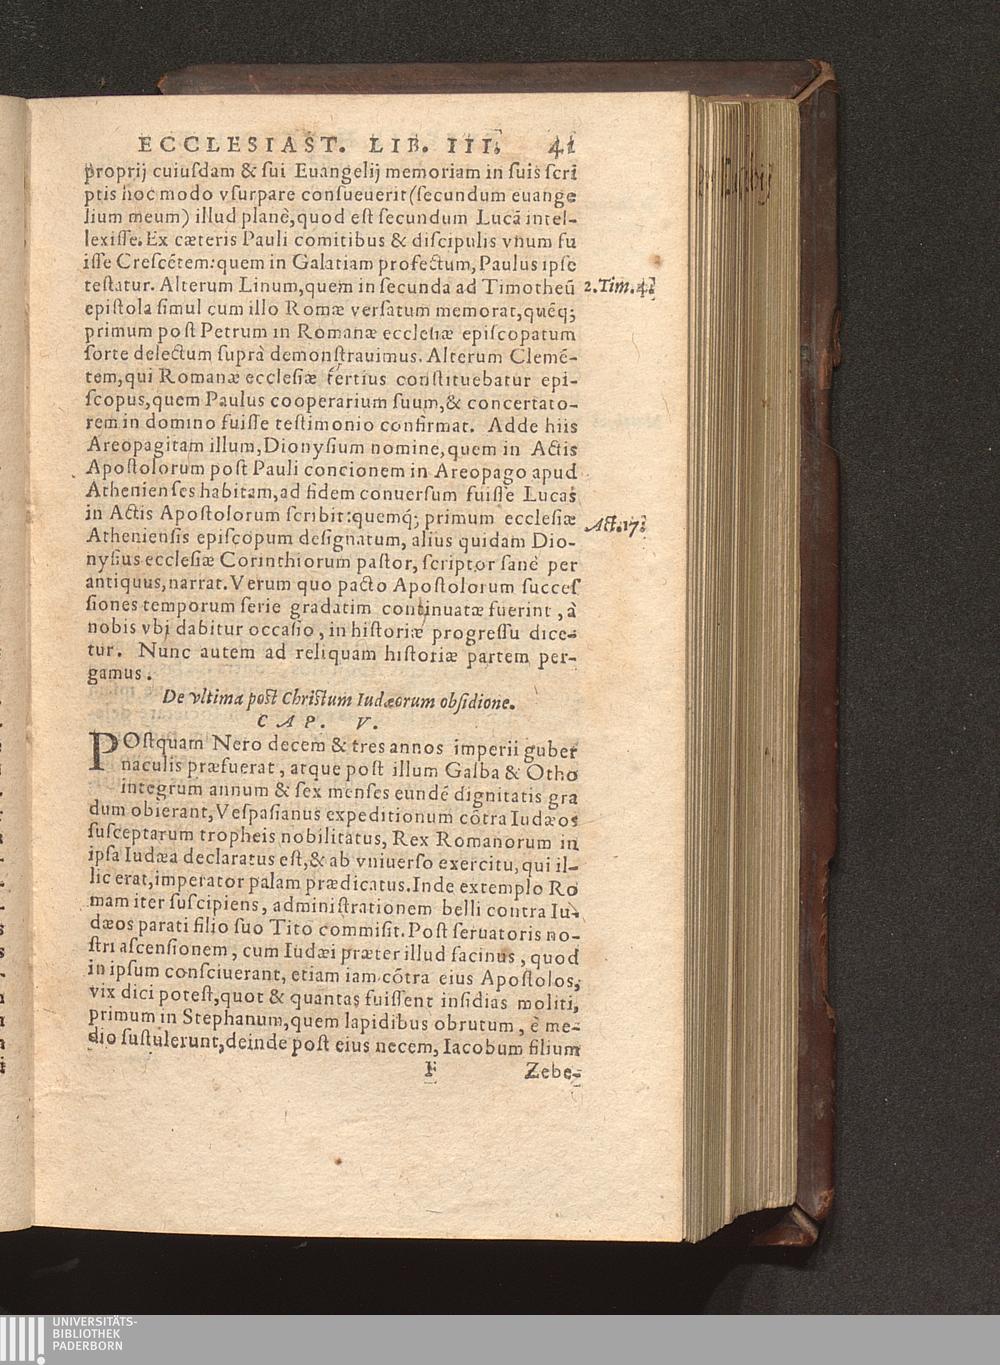 ECCLESIAST. LIB. III. 41
proprij cuiuſdam & ſui Euangelij memoriam in ſuis ſcri
ptis hoc modo vſurpare conſueuerit (ſecundum euange
lium meum) illud planè, quod eſt ſecundum Lucā intel-
lexiſſe. Ex cæteris Pauli comitibus & diſcipulis vnum fu
iſſe Creſcētem: quem in Galatiam profectum, Paulus ipſe
teſtatur. Alterum Linum, quem in ſecunda ad Timotheū
2. Tim. 4.
epiſtola ſimul cum illo Romæ verſatum memorat, quēq;
primum poſt Petrum in Romanæ eccleſiæ epiſcopatum
ſorte delectum ſuprà demonſtrauimus. Alterum Clemē-
tem, qui Romanæ eccleſiæ tertius conſtituebatur epi-
ſcopus, quem Paulus cooperarium ſuum, & concertato-
rem in domino fuiſſe teſtimonio confirmat. Adde hiis
Areopagitam illum, Dionyſium nomine, quem in Actis
Apoſtolorum poſt Pauli concionem in Areopago apud
Athenienſes habitam, ad fidem conuerſum fuiſſe Lucas
in Actis Apoſtolorum ſcribit: quemq́; primum eccleſiæ
Act. 17.
Athenienſis epiſcopum deſignatum, alius quidam Dio-
nyſius eccleſiæ Corinthiorum paſtor, ſcriptor ſanè per
antiquus, narrat. Verum quo pacto Apoſtolorum ſucceſ
ſiones temporum ſerie gradatim continuatæ fuerint, à
nobis vbi dabitur occaſio, in hiſtoriæ progreſſu dice-
tur. Nunc autem ad reliquam hiſtoriæ partem per-
gamus.
De vltima poſt Chriſtum Iudæorum obſidione.
CAP. V.
POſtquam Nero decem & tres annos imperii guber
naculis præfuerat, atque poſt illum Galba & Otho
integrum annum & ſex menſes eundē dignitatis gra
dum obierant, Veſpaſianus expeditionum cōtra Iudæos
ſuſceptarum tropheis nobilitatus, Rex Romanorum in
ipſa Iudæa declaratus eſt, & ab vniuerſo exercitu, qui il-
lic erat, imperator palam prædicatus. Inde extemplo Ro
mam iter ſuſcipiens, adminiſtrationem belli contra Iu-
dæos parati filio ſuo Tito commiſit. Poſt ſeruatoris no-
ſtri aſcenſionem, cum Iudæi præter illud facinus, quod
in ipſum conſciuerant, etiam iam cōtra eius Apoſtolos,
vix dici poteſt, quot & quantas fuiſſent inſidias moliti,
primum in Stephanum, quem lapidibus obrutum, è me-
dio ſuſtulerunt, deinde poſt eius necem, Iacobum filium
F Zebe-
UNIVERSITÄTS-
BIBLIOTHEK
PADERBORN